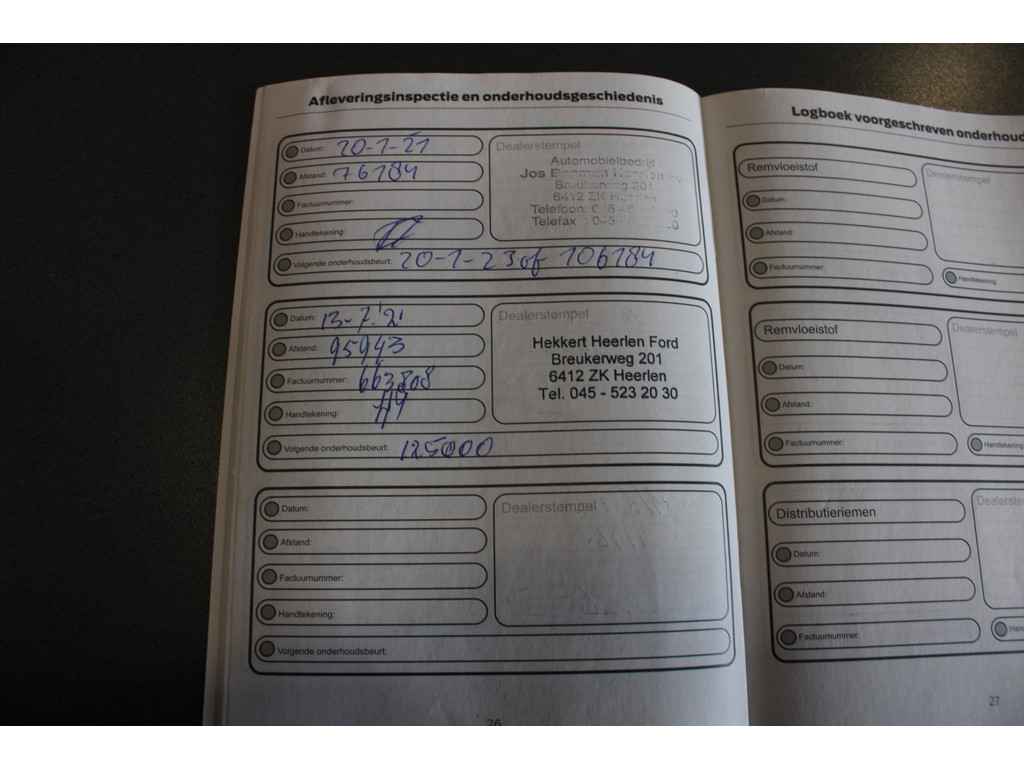 Afleveringsinspectie en onderhoudsgeschiedenis
Datum: 20-1-21
Afstand: 76184
Factuurnummer:
Handtekening:
Volgende onderhoudsbeurt: 20-1-23 of 106184
Dealerstempel
Automobielbedrijf
Jos
Breukerweg 201
6412 ZK Heerlen
Telefoon
Telefax
Datum: 13-7-'21
Afstand: 95943
Factuurnummer: 663808
Handtekening:
Volgende onderhoudsbeurt: 125000
Dealerstempel
Hekkert Heerlen Ford
Breukerweg 201
6412 ZK Heerlen
Tel. 045 - 523 20 30
Datum:
Afstand:
Factuurnummer:
Handtekening:
Volgende onderhoudsbeurt:
Dealerstempel
26
Logboek voorgeschreven onderhoud
Remvloeistof
Datum:
Afstand:
Factuurnummer:
Dealerstempel
Handtekening:
Remvloeistof
Datum:
Afstand:
Factuurnummer:
Dealerstempel
Handtekening
Distributieriemen
Datum:
Afstand:
Factuurnummer:
Dealerste
Hand
27